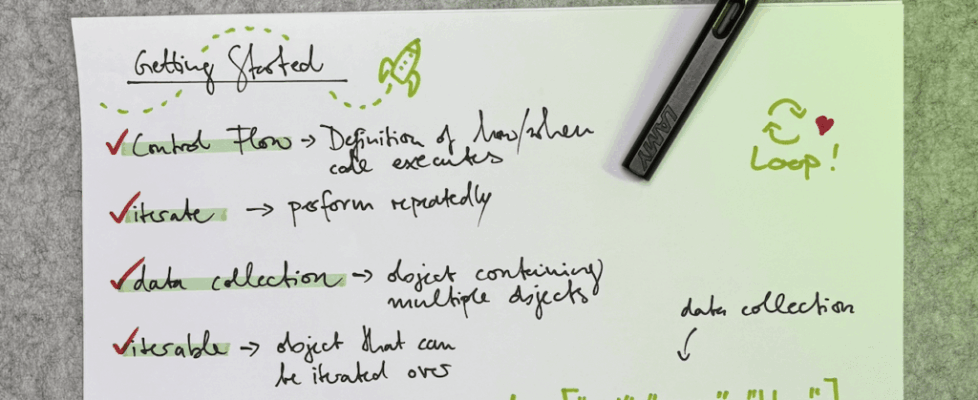 Getting Started
Control Flow → Definition of how/when
code executes
iterate → perform repeatedly
data collection → object containing
multiple objects
iterable → object that can
be iterated over
Loop!
LAMY
data collection